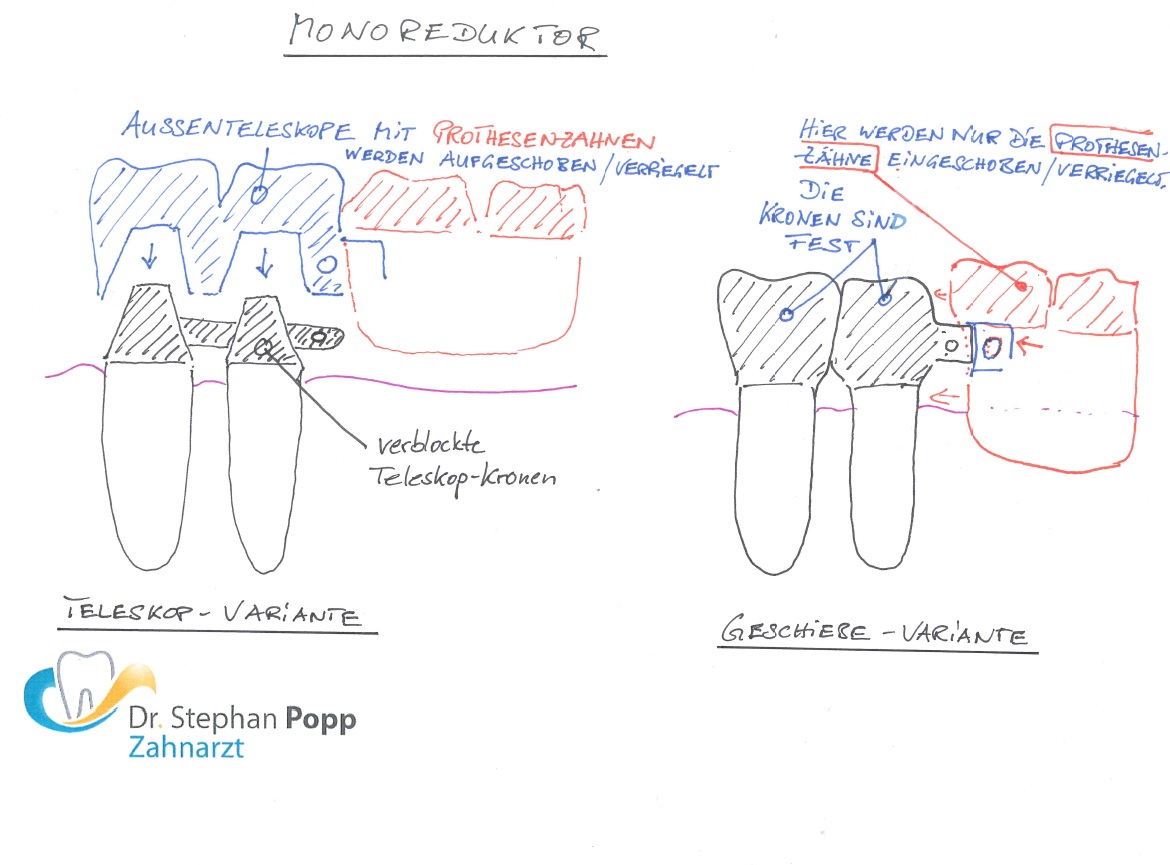 MONOREDUKTOR
AUSSENTELESKOPE MIT PROTHESENZAHNEN
WERDEN AUFGESCHOBEN/VERRIEGELT
HIER WERDEN NUR DIE PROTHESEN-
ZÄHNE EINGESCHOBEN/VERRIEGELT.
DIE
KRONEN SIND
FEST
verblockte
Teleskop-Kronen
TELESKOP-VARIANTE
GESCHIEBE-VARIANTE
Dr. Stephan Popp
Zahnarzt